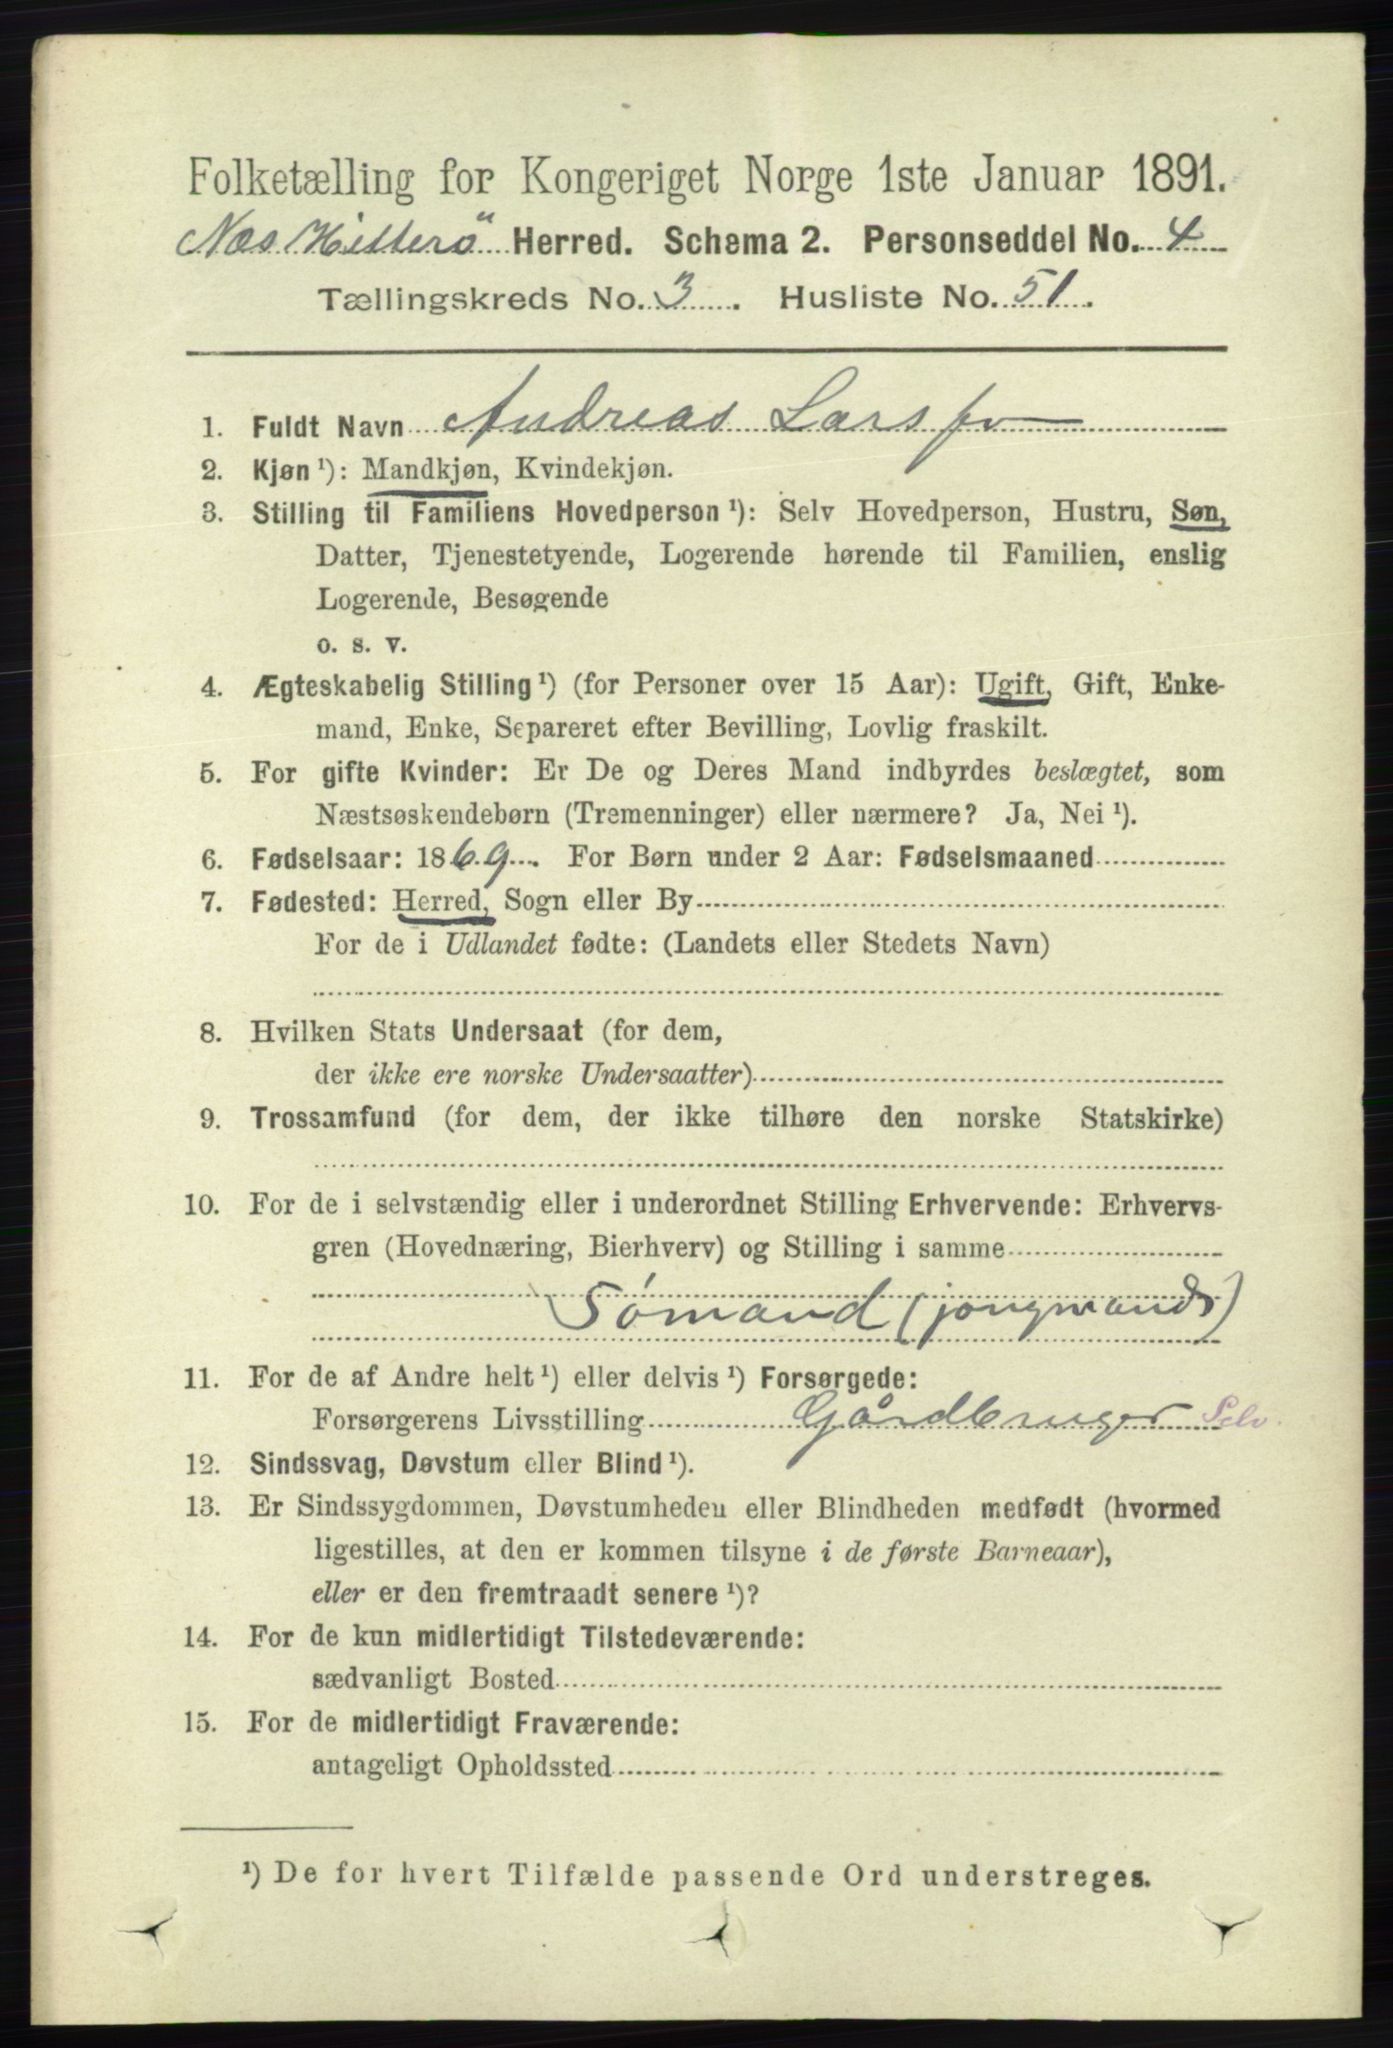 Folketælling for Kongeriget Norge 1ste Januar 1891.
Næs Hitterö Herred. Schema 2. Personseddel No. 4
Tællingskreds No. 3. Husliste No. 51.
1. Fuldt Navn Andreas Larsen
2. Kjøn ¹): Mandkjøn, Kvindekjøn.
3. Stilling til Familiens Hovedperson ¹): Selv Hovedperson, Hustru, Søn,
Datter, Tjenestetyende, Logerende hørende til Familien, enslig
Logerende, Besøgende
o. s. v.
4. Ægteskabelig Stilling ¹) (for Personer over 15 Aar): Ugift, Gift, Enke-
mand, Enke, Separeret efter Bevilling, Lovlig fraskilt.
5. For gifte Kvinder: Er De og Deres Mand indbyrdes beslægtet, som
Næstsøskendebørn (Tremenninger) eller nærmere? Ja, Nei ¹).
6. Fødselsaar: 1869. For Børn under 2 Aar: Fødselsmaaned
7. Fødested: Herred, Sogn eller By
For de i Udlandet fødte: (Landets eller Stedets Navn)
8. Hvilken Stats Undersaat (for dem,
der ikke ere norske Undersaatter)
9. Trossamfund (for dem, der ikke tilhøre den norske Statskirke)
10. For de i selvstændig eller i underordnet Stilling Erhvervende: Erhvervs-
gren (Hovednæring, Bierhverv) og Stilling i samme
Sømand (jongmands)
11. For de af Andre helt ¹) eller delvis ¹) Forsørgede:
Forsørgerens Livsstilling Gårdbruger Selv.
12. Sindssvag, Døvstum eller Blind ¹).
13. Er Sindssygdommen, Døvstumheden eller Blindheden medfødt (hvormed
ligestilles, at den er kommen tilsyne i de første Barneaar),
eller er den fremtraadt senere ¹)?
14. For de kun midlertidigt Tilstedeværende:
sædvanligt Bosted
15. For de midlertidigt Fraværende:
antageligt Opholdssted
¹) De for hvert Tilfælde passende Ord understreges.